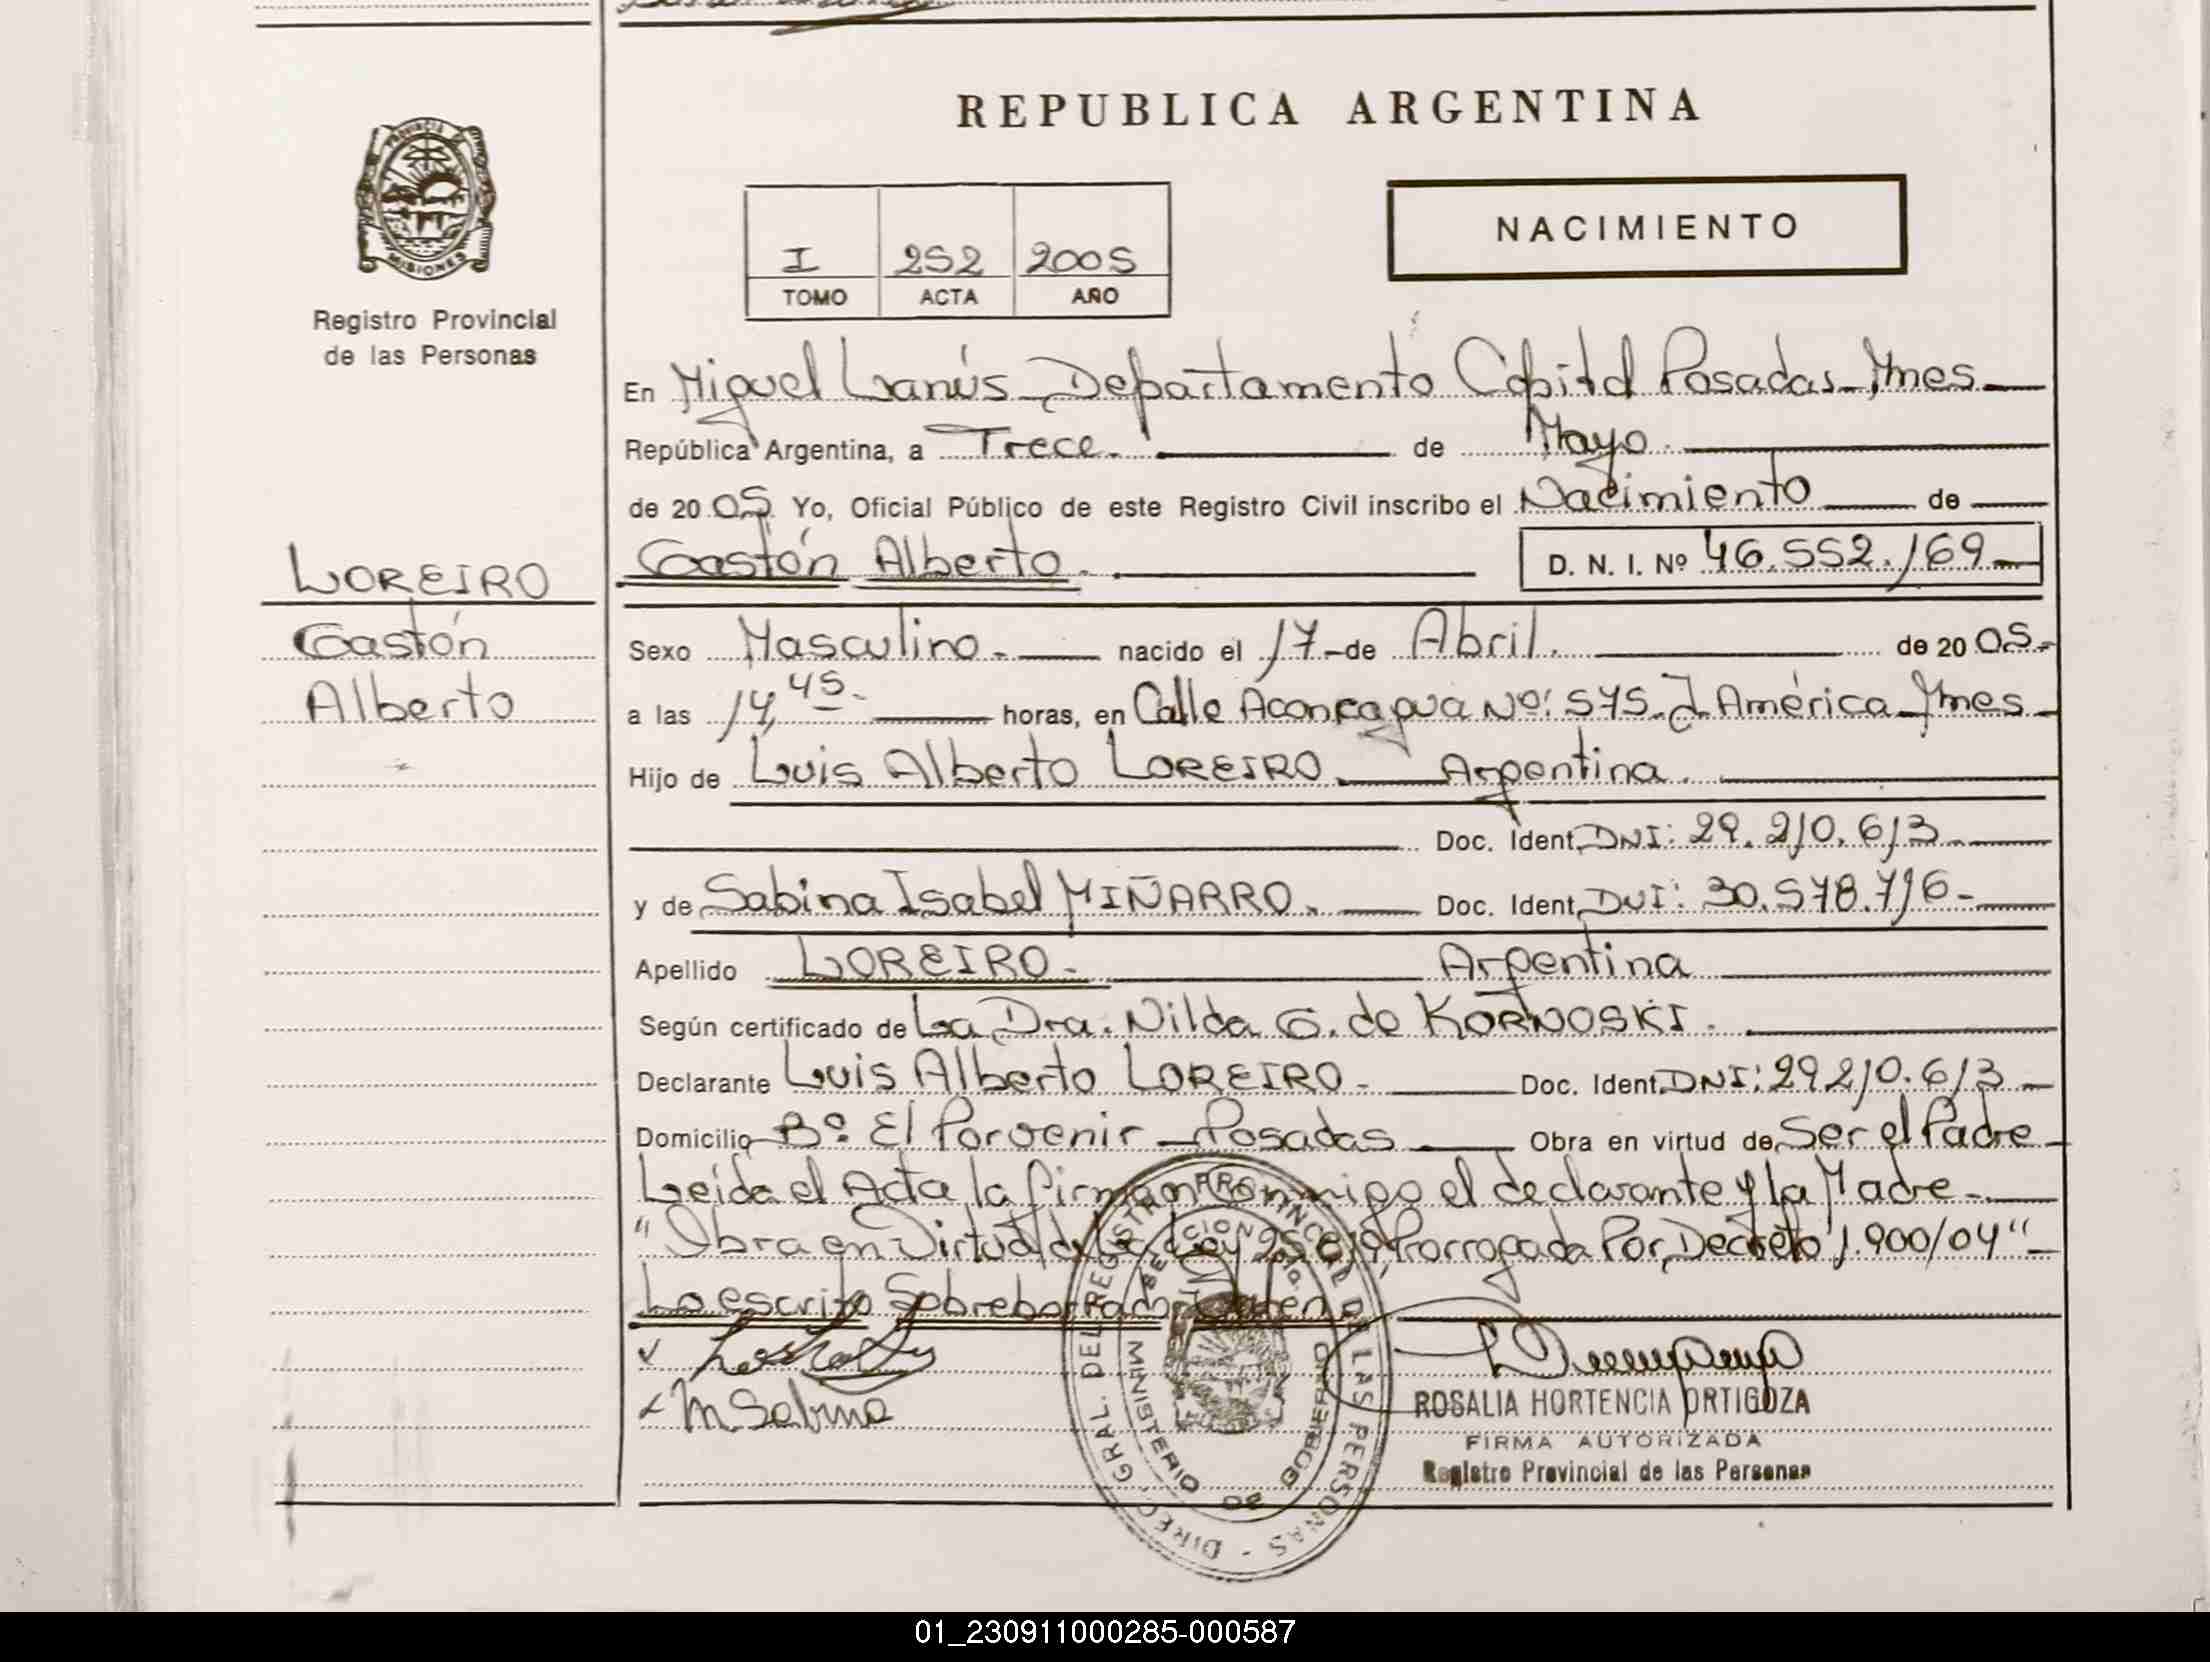 REPUBLICA ARGENTINA
PROVINCIA DE
MISIONES
Registro Provincial
de las Personas
NACIMIENTO
I 252 2005
TOMO ACTA AÑO
En Miguel Lanús Departamento Capital Posadas Mnes
República Argentina, a Trece. de Mayo.
de 2005 Yo, Oficial Público de este Registro Civil inscribo el Nacimiento de
Gastón Alberto. D. N. I. Nº 46.552.169
LOREIRO
Gastón
Alberto
Sexo Masculino. nacido el 17 de Abril. de 2005.
a las 14,45. horas, en Calle Aconcagua Nº: 575. J América Mnes
Hijo de Luis Alberto LOREIRO. Argentina.
Doc. Ident. DNI: 29.210.613
y de Sabina Isabel MIÑARRO. Doc. Ident. DNI: 30.578.716
Apellido LOREIRO. Argentina
Según certificado de La Dra. Nilda G. de KORNOSKI.
Declarante Luis Alberto LOREIRO. Doc. Ident. DNI: 29210.613
Domicilio Bº. El Porvenir Posadas Obra en virtud de Ser el Padre
Leída el Acta la firman Conmigo el declarante y la Madre
"Obra en Virtud de la Ley Prorrogada Por Decreto 1.900/04"
Lo escrito Sobreborrado
M Sabina
DIREC. GRAL. DEL REGISTRO PROVINCIAL DE LAS PERSONAS
MINISTERIO DE GOBIERNO
ROSALIA HORTENCIA ORTIGOZA
FIRMA AUTORIZADA
Registro Provincial de las Personas
01_230911000285-000587